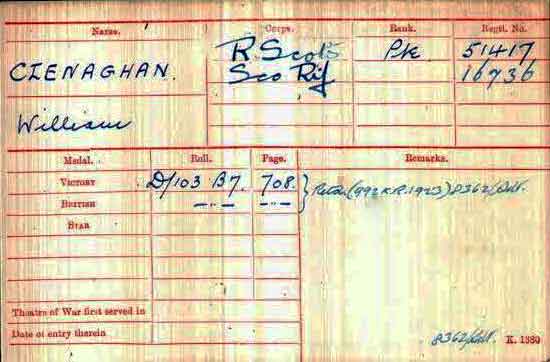 Name. Corps. Rank. Regtl. No.
CLENAGHAN. R. Scots Pte 51417
Sco Rif 16736
William
Medal. Roll. Page. Remarks.
VICTORY D/103 B7. 708.
BRITISH —"— —"—
STAR
(992 K.R. 1923) 8362/Adt.
Theatre of War first served in
Date of entry therein
8362/Adt. K. 1380